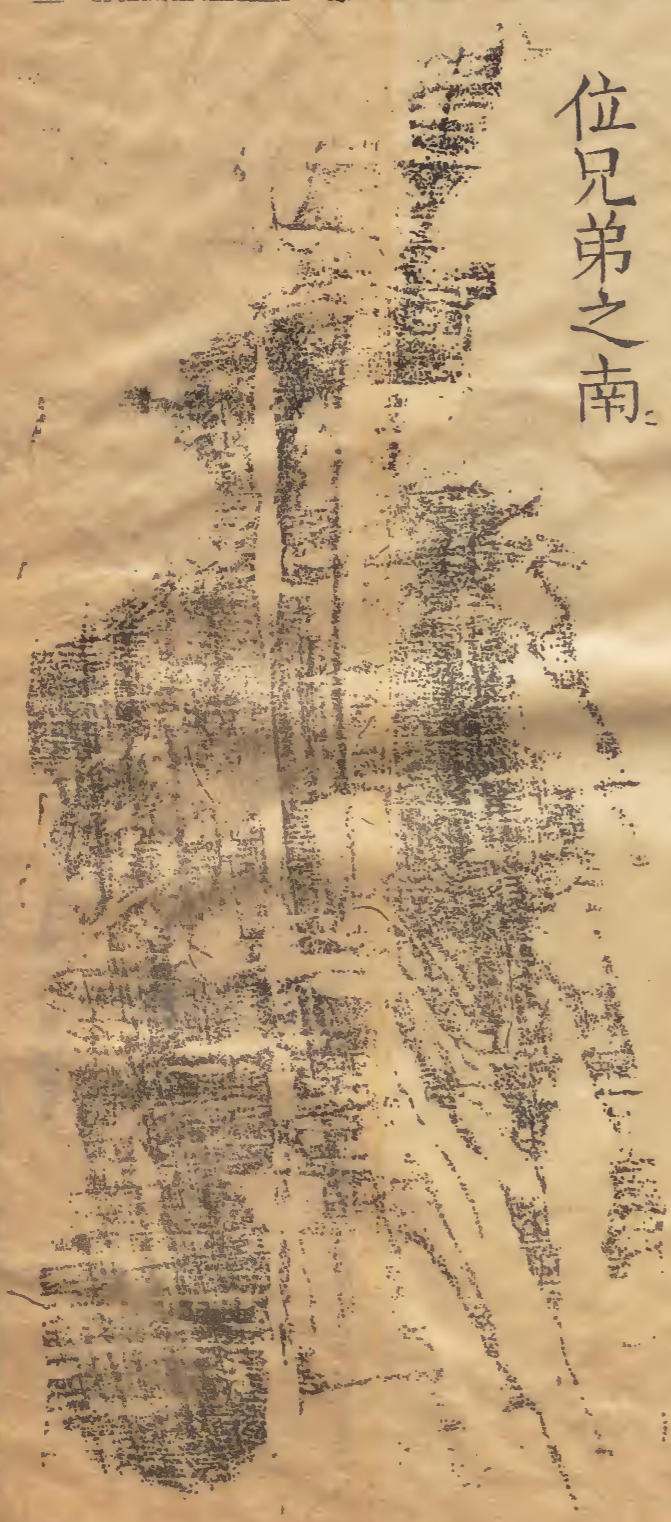 位兄弟之南